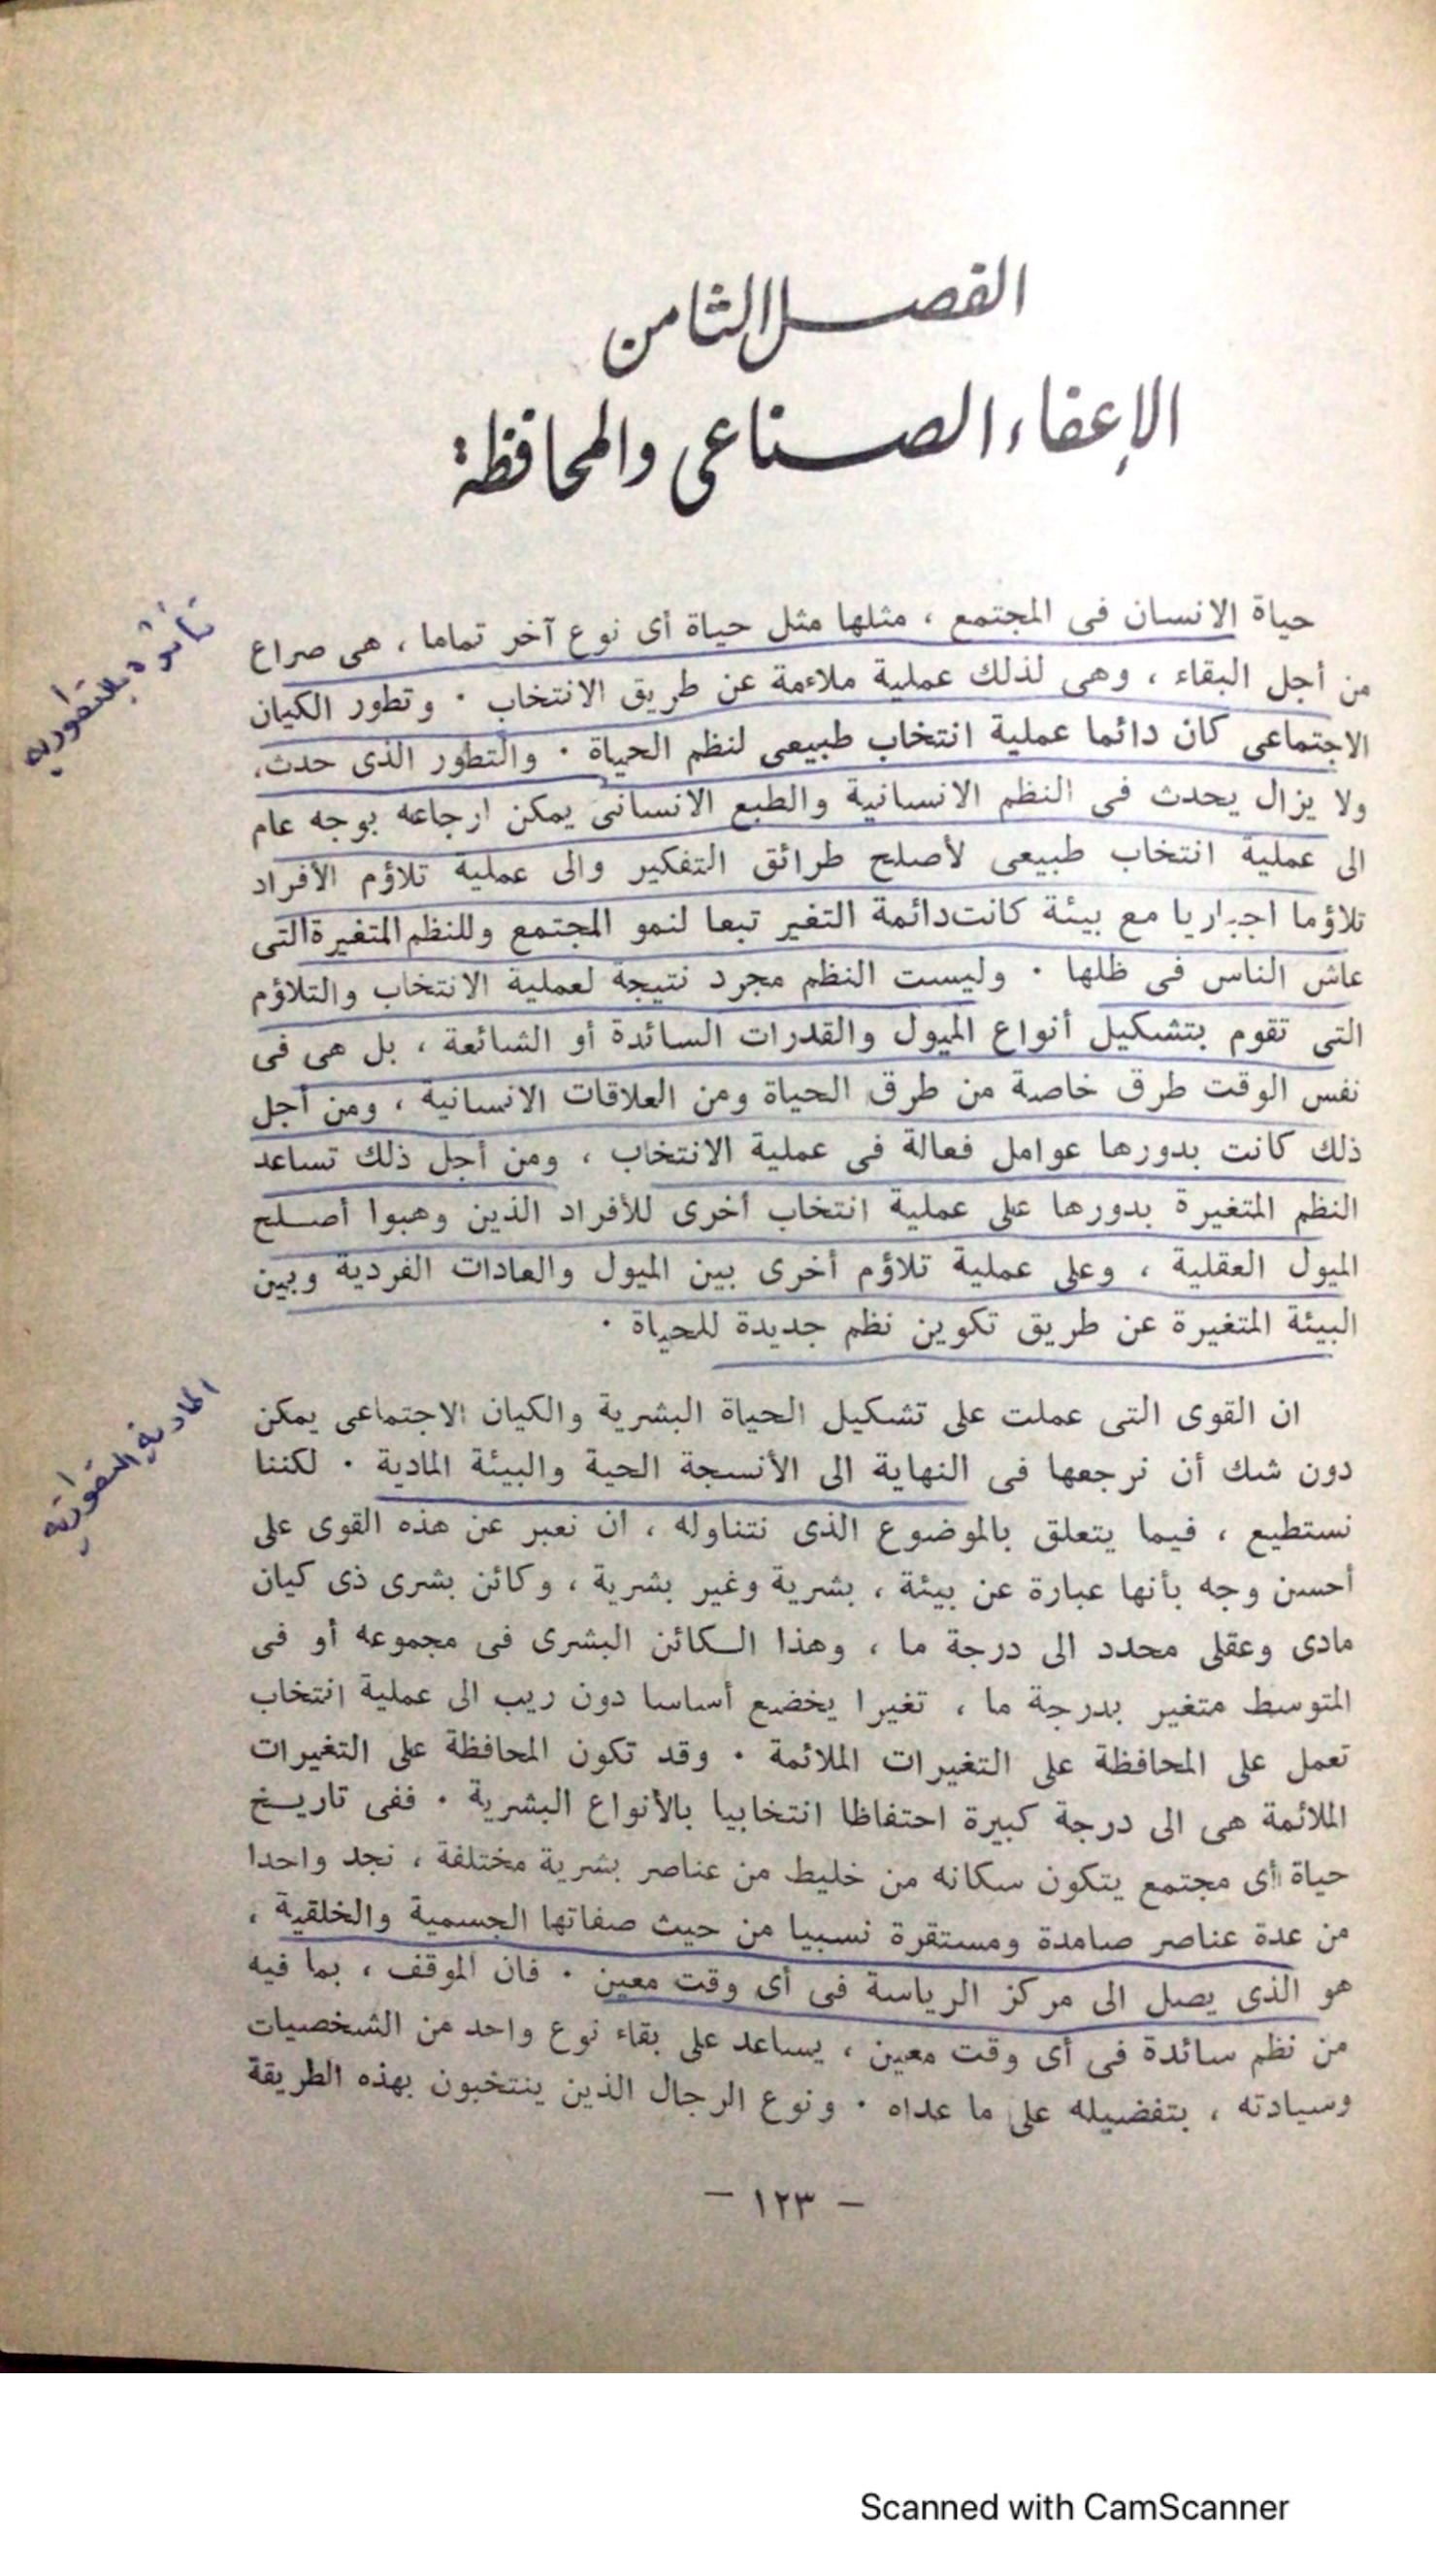 الفصل الثامن
الإعفاء الصناعى والمحافظة
حياة الانسان فى المجتمع ، مثلها مثل حياة أى نوع آخر تماما ، هى صراع
من أجل البقاء ، وهى لذلك عملية ملاءمة عن طريق الانتخاب · وتطور الكيان
الاجتماعى كان دائما عملية انتخاب طبيعى لنظم الحياة · والتطور الذى حدث،
ولا يزال يحدث فى النظم الانسانية والطبع الانسانى يمكن ارجاعه بوجه عام
الى عملية انتخاب طبيعى لأصلح طرائق التفكير والى عملية تلاؤم الأفراد
تلاؤما اجباريا مع بيئة كانت دائمة التغير تبعا لنمو المجتمع وللنظم المتغيرة التى
عاش الناس فى ظلها · وليست النظم مجرد نتيجة لعملية الانتخاب والتلاؤم
التى تقوم بتشكيل أنواع الميول والقدرات السائدة أو الشائعة ، بل هى فى
نفس الوقت طرق خاصة من طرق الحياة ومن العلاقات الانسانية ، ومن أجل
ذلك كانت بدورها عوامل فعالة فى عملية الانتخاب ، ومن أجل ذلك تساعد
النظم المتغيرة بدورها على عملية انتخاب أخرى للأفراد الذين وهبوا أصلح
الميول العقلية ، وعلى عملية تلاؤم أخرى بين الميول والعادات الفردية وبين
البيئة المتغيرة عن طريق تكوين نظم جديدة للحياة ·
تأثره بالتطورية
ان القوى التى عملت على تشكيل الحياة البشرية والكيان الاجتماعى يمكن
دون شك أن نرجعها فى النهاية الى الأنسجة الحية والبيئة المادية · لكننا
نستطيع ، فيما يتعلق بالموضوع الذى نتناوله ، ان نعبر عن هذه القوى على
أحسن وجه بأنها عبارة عن بيئة ، بشرية وغير بشرية ، وكائن بشرى ذى كيان
مادى وعقلى محدد الى درجة ما ، وهذا الكائن البشرى فى مجموعه أو فى
المتوسط متغير بدرجة ما ، تغيرا يخضع أساسا دون ريب الى عملية انتخاب
تعمل على المحافظة على التغيرات الملائمة · وقد تكون المحافظة على التغيرات
الملائمة هى الى درجة كبيرة احتفاظا انتخابيا بالأنواع البشرية · ففى تاريخ
حياة أى مجتمع يتكون سكانه من خليط من عناصر بشرية مختلفة ، نجد واحدا
من عدة عناصر صامدة ومستقرة نسبيا من حيث صفاتها الجسمية والخلقية ،
هو الذى يصل الى مركز الرياسة فى أى وقت معين · فان الموقف ، بما فيه
من نظم سائدة فى أى وقت معين ، يساعد على بقاء نوع واحد من الشخصيات
وسيادته ، بتفضيله على ما عداه · ونوع الرجال الذين ينتخبون بهذه الطريقة
المادية
- ١٢٣ -
Scanned with CamScanner